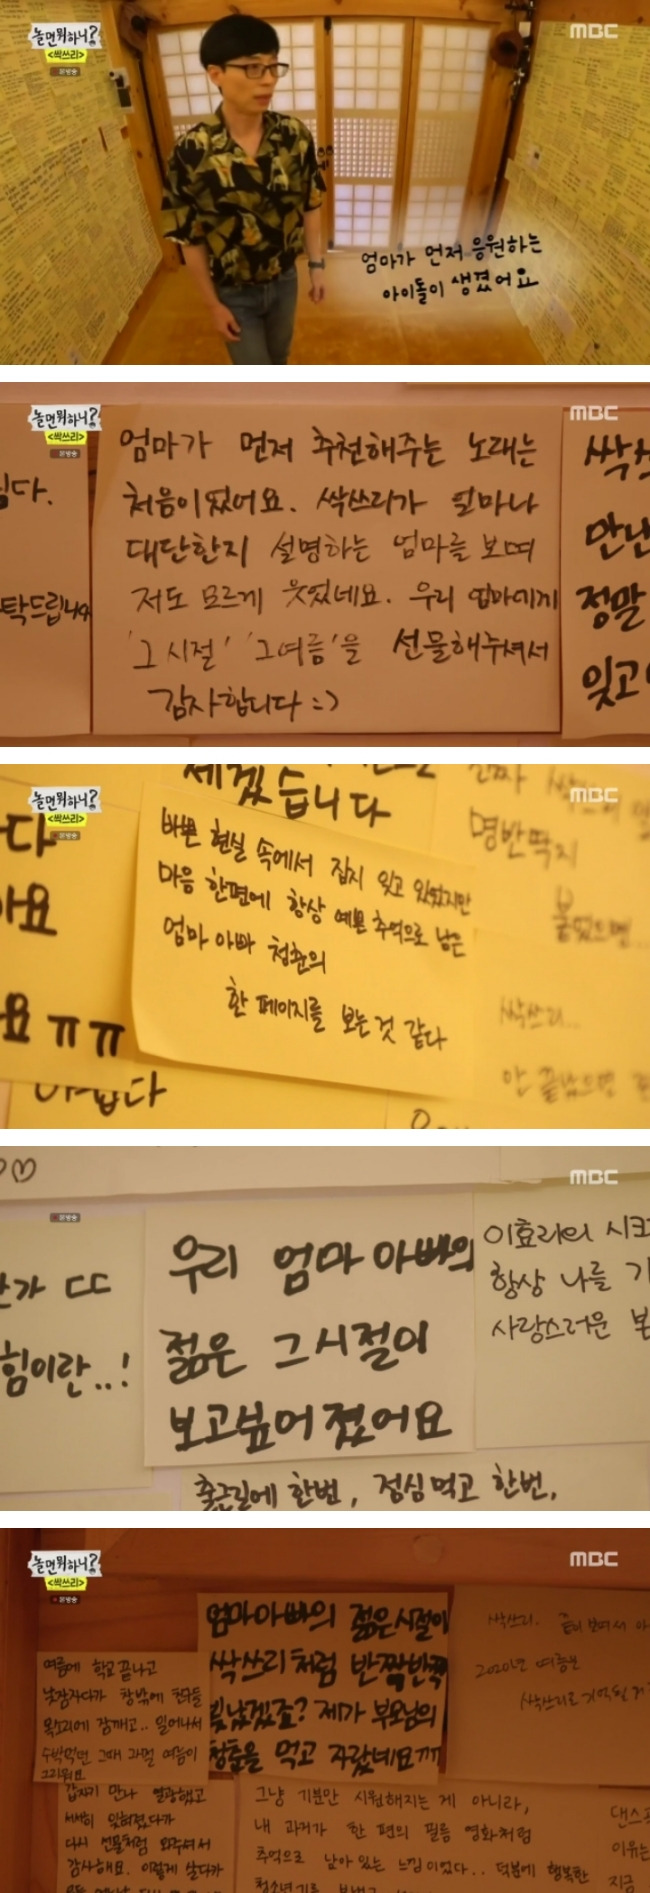 놀면뭐하니?
<싹쓰리>
본방송
MBC
엄마가 먼저 응원하는
아이돌이 생겼어요
놀면뭐하니?
<싹쓰리>
본방송
MBC
엄마가 먼저 추천해주는 노래는
처음이었어요. 싹쓰리가 얼마나
대단한지 설명하는 엄마를 보며
저도 모르게 웃었네요. 우리 엄마에게
'그 시절' '그여름'을 선물해주셔서
감사합니다 :-)
만난
정말
잊고
놀면뭐하니?
<싹쓰리>
본방송
MBC
세겠습니다
바쁜 현실 속에서 잠시 잊고 있었지만
마음 한편에 항상 예쁜 추억으로 남은
엄마 아빠 청춘의
한 페이지를 보는것 같다
명반딱지
붙였으면...
싹쓰리...
요ㅠㅠ
MBC
본방송
우리 엄마아빠의
젊은 그시절이
보고싶어졌어요
힘이란..!
이효리의 시크
항상 나를
사랑스러운
출근길에 한번, 점심먹고 한번,
놀면뭐하니?
<싹쓰리>
본방송
MBC
엄마아빠의 젊은시절이
싹쓰리처럼 반짝반짝
빛났겠죠? 제가 부모님의
청춘을 먹고 자랐네요ㅠㅠ
여름에 학교 끝나고
낮잠자다가 창밖에 친구들
목소리에 잠깨고.. 일어나서
수박먹던 그때 그 여름이
그리워요
싹쓰리. 끝이보여서
2020년 여름은
싹쓰리로 기억될
갑자기 만나 열광했고
서서히 잊혀졌다가
다시 선물처럼 와주셔서
감사해요. 이렇게 살다가
그냥 기분만 시원해지는 게 아니라,
내 과거가 한 편의 필름 영화처럼
추억으로 남아있는 느낌이었다.. 덕분에 행복한
댄스
이유는
지금